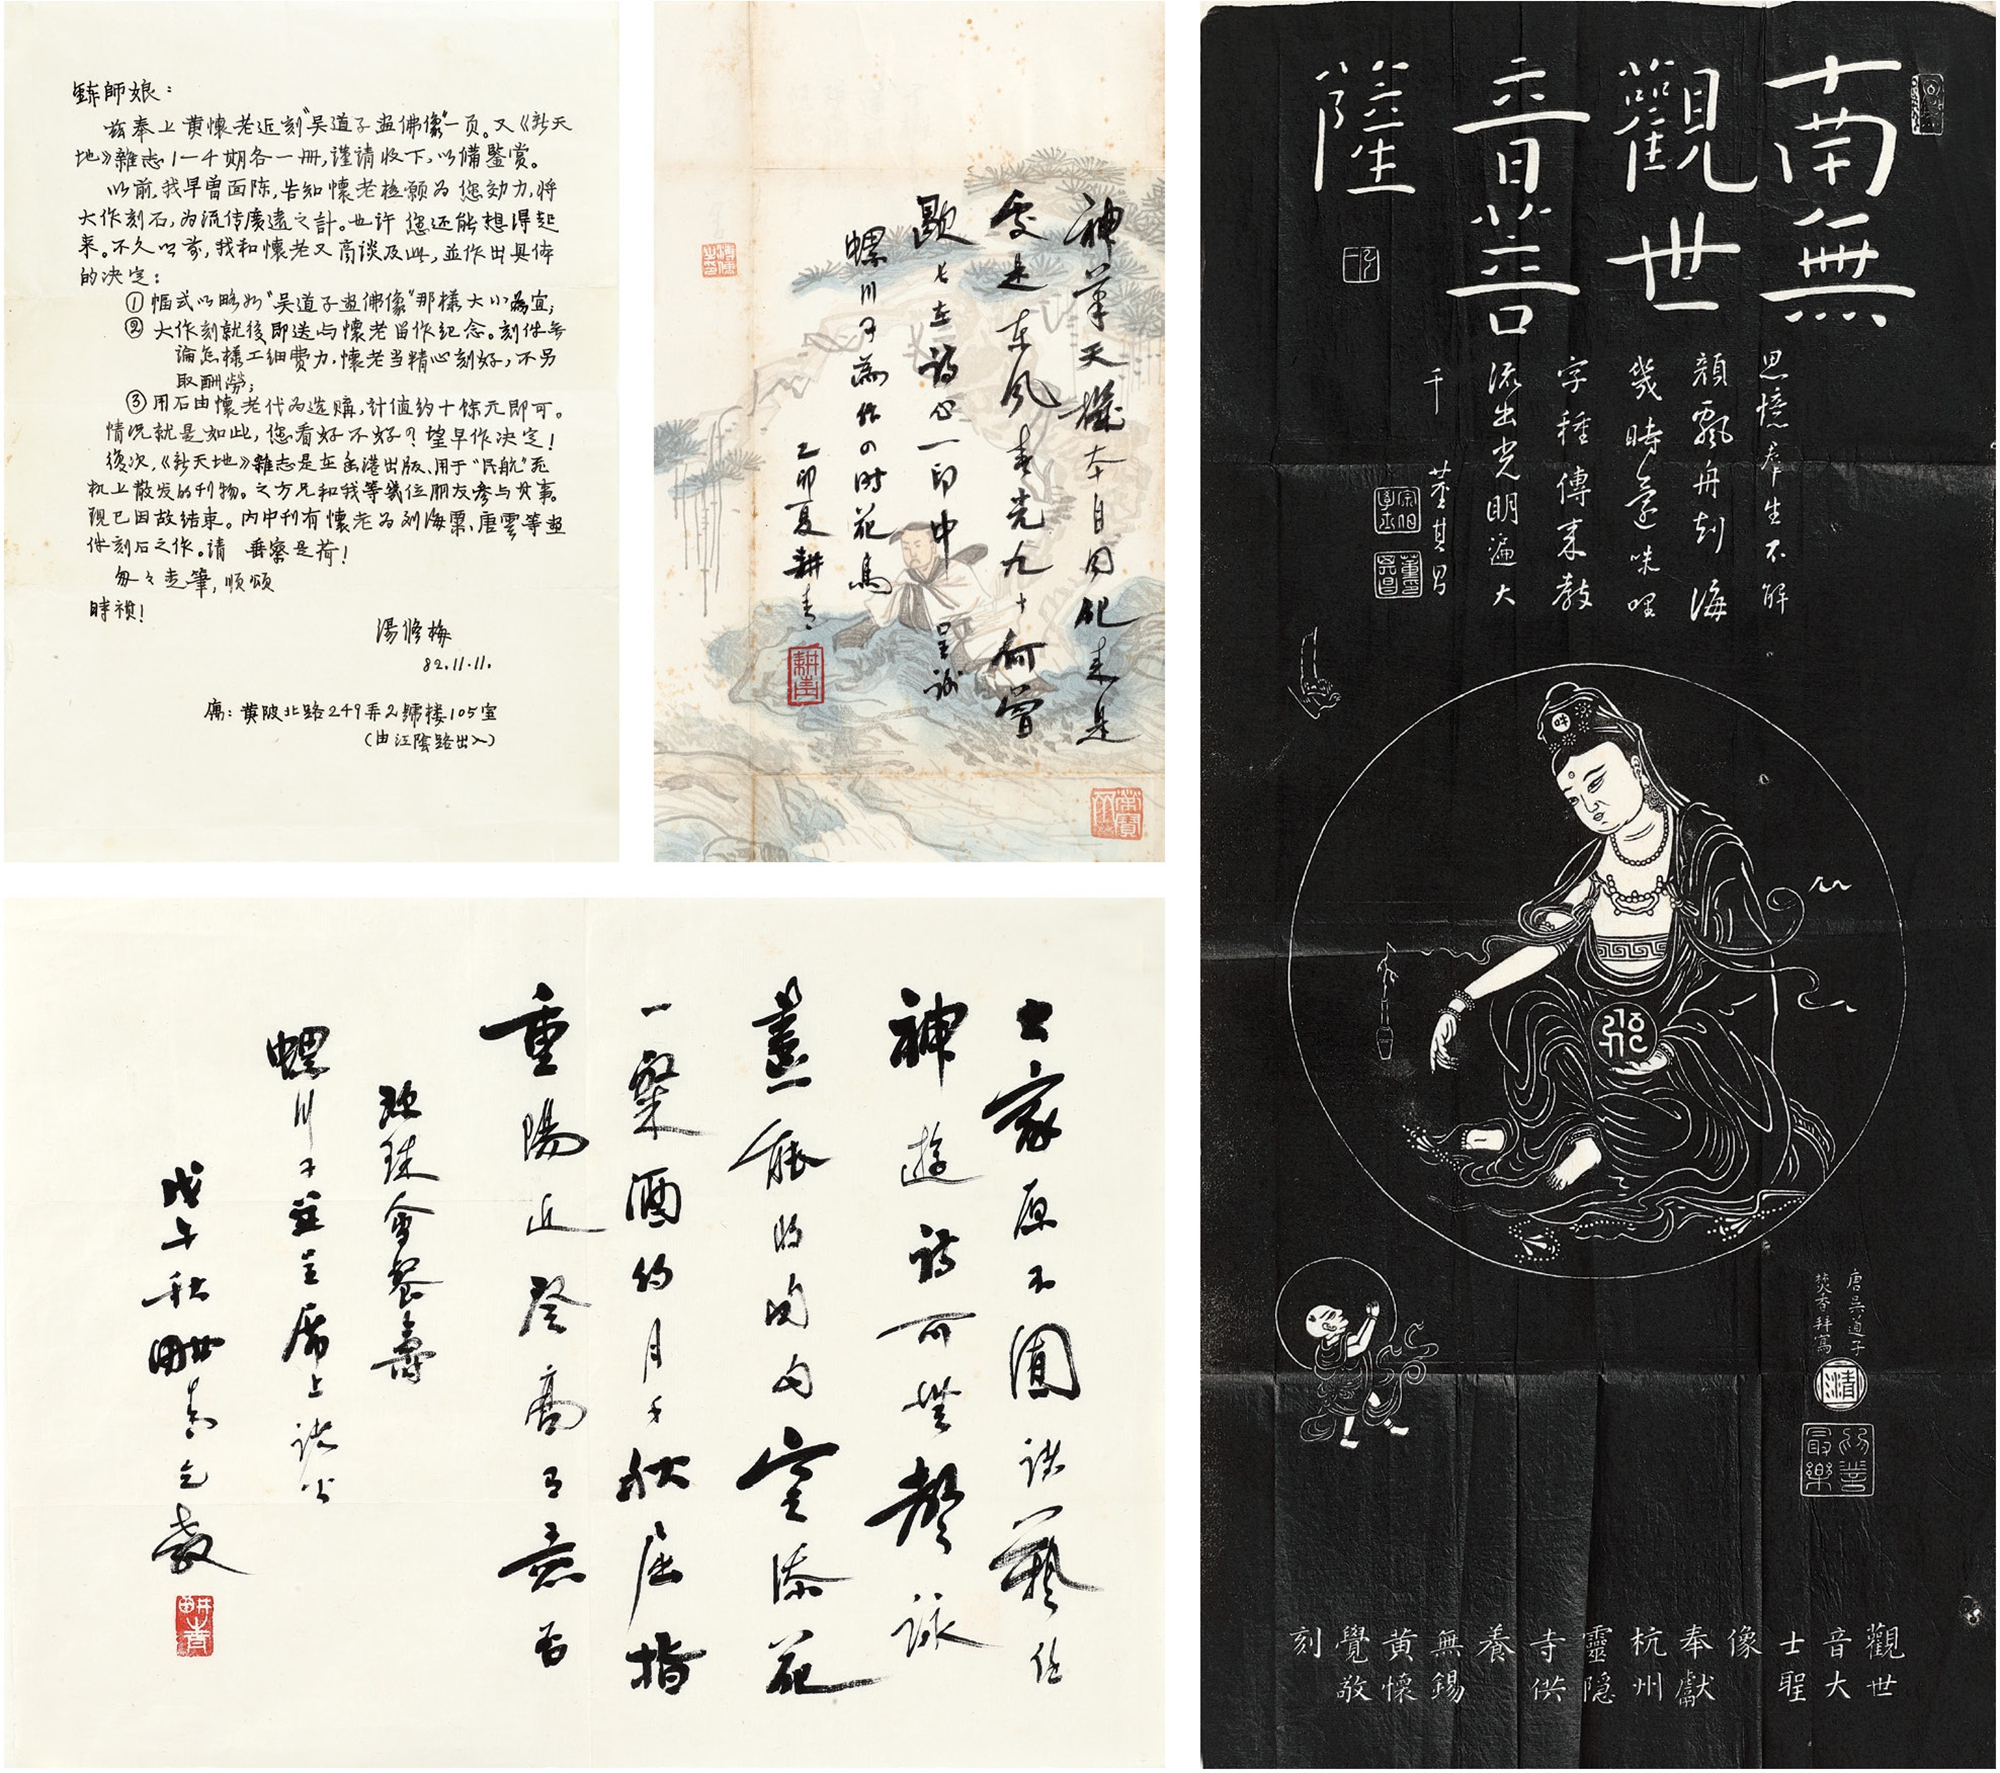 師娘：
兹奉上黄懷老近刻"吴道子画佛像"一页。又《新天
地》雜志1—4期各一册，謹請收下，以備鑒賞。
以前，我早曾面陈，告知懷老極願为您効力，将
大作刻石，为流传廣遠之計。也许您还能想得起
来。不久以前，我和懷老又商谈及此，並作出具体
的决定：
①幅式以略如"吴道子画佛像"那樣大小為宜；
②大作刻就後即送与懷老留作纪念。刻件无
論怎樣工细费力，懷老当精心刻好，不另
取酬勞；
③用石由懷老代为选購，計值约十餘元即可。
情况就是如此，您看好不好？望早作决定！
後次，《新天地》雜志是在香港出版、用于"民航"飛
机上散发的刊物。之方兄和我等幾位朋友參与其事。
現已因故结束。内中刊有懷老为刘海粟，唐雲等画
件刻石之作。请 垂察是荷！
匆々走筆，順頌
時祺！
湯修梅
82.11.11.
寓：黄陂北路249弄2號楼105室
（由江陰路出入）
神筆天機本自因化来是
處是東风春光九十何曾
歇只在詩心一印中 呈誠
螺川子為作四时花鳥
乙卯夏耕青
耕青
榮寶
士家原不閴談藝任
神遊詩可無聲詠
畫能得句空添花
一粲酒約月千秋屈指
重陽近登高有意否
珠會餐壽
螺川子並呈席上諸公
戊午秋耕青乞教
耕青
南無
觀世
音菩
薩
思憶羣生不解
顔飄舟到海
幾時還唵哩
字種傳來教
流出光明遍大
千
董其昌
唐吴道子
焚香拜寫
為善
最樂
觀世
音大
士聖
像
奉獻
杭州
靈隠
寺供
養
無錫
黄懷
覺敬
刻